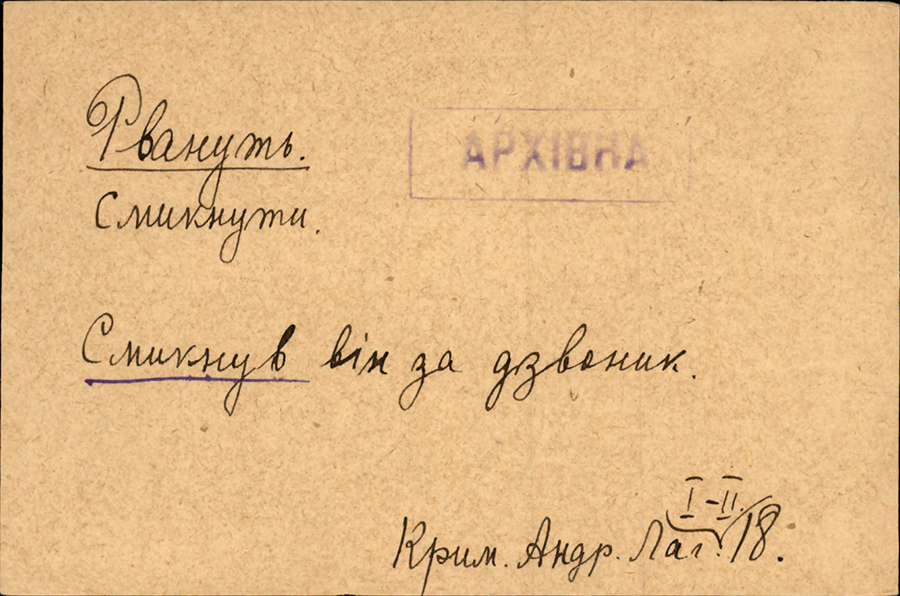 Рвануть.
АРХІВНА
Смикнути.
Смикнув він за дзвоник.
I-II.
Крим. Андр. Лаг. 18.